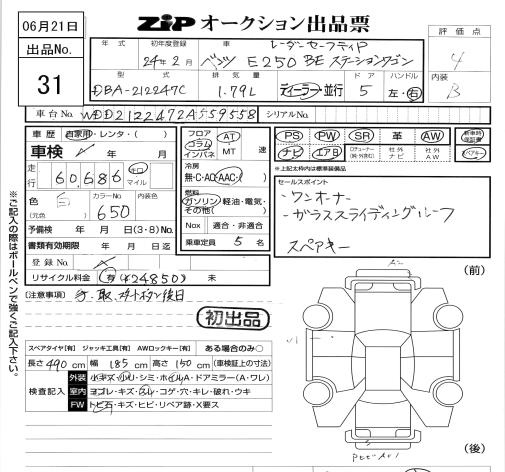 06月21日
出品No.
31
ZiP オークション出品票
年式 初年度登録 車
24年2月 ベンツ E250 BE ステーションワゴン
レーダーセーフティP
型式 排気量 ドア ハンドル
DBA-212247C 1.79L ディーラー・並行 5 左・右
評価点
4
内装
B
車台No. WDD2122472A559558 シリアルNo.
車歴 自家用・レンタ・( )
車検 年 月
走行 60,686 キロ マイル
色 白 カラーNo. 内装色
(元色) 650
予備検 年 月 日(3・8)No.
書類有効期限 年 月 日迄
登録No.
リサイクル料金 有(¥24850) 未
フロア コラム インパネ AT MT 速
冷房
無・C・AO・AAC・( )
燃料
ガソリン・軽油・電気・その他( )
Nox 適合・非適合
乗車定員 5 名
PS PW SR 革 AW
ナビ エアB 社外ナビ 社外AW
新車時保証書
スペアキー
※上記太枠内は標準装備品
セールスポイント
・ワンオーナー
・ガラススライディングルーフ
スペアキー
[注意事項]
初出品
※ご記入の際はボールペンで強くご記入下さい。
スペアタイヤ[有] ジャッキ工具[有] AWロックキー[有] ある場合のみ○
長さ 490 cm 幅 185 cm 高さ 150 cm (車検証上の寸法)
検査記入
外装 小キズ・小U・シミ・ホイルA・ドアミラー(A・ワレ)
室内 ヨゴレ・キズ・スレ・コゲ・穴・キレ・破れ・ウキ
FW トビ石・キズ・ヒビ・リペア跡・X要ス
(前)
(後)